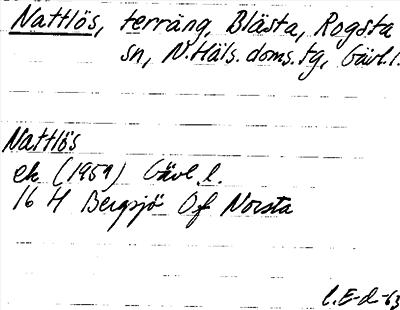 Nattlös, terräng, Blästa, Rogsta
sn, N.Häls. doms.tg, Gävl.l.
Nattlös
ek (1959) Gävl.l.
16 H Bergsjö Of Norsta
C.E-d-63